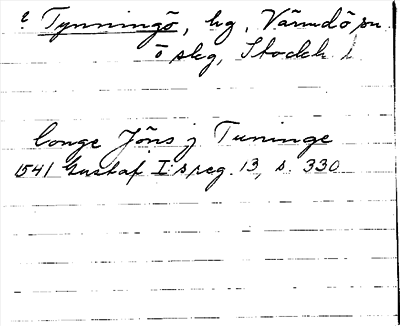 ? Tynningö, hg, Värmdö sn
ö skg, Stockh l
Conge Jöns j Tuninge
1541 Gustaf I:s reg. 13, s. 330